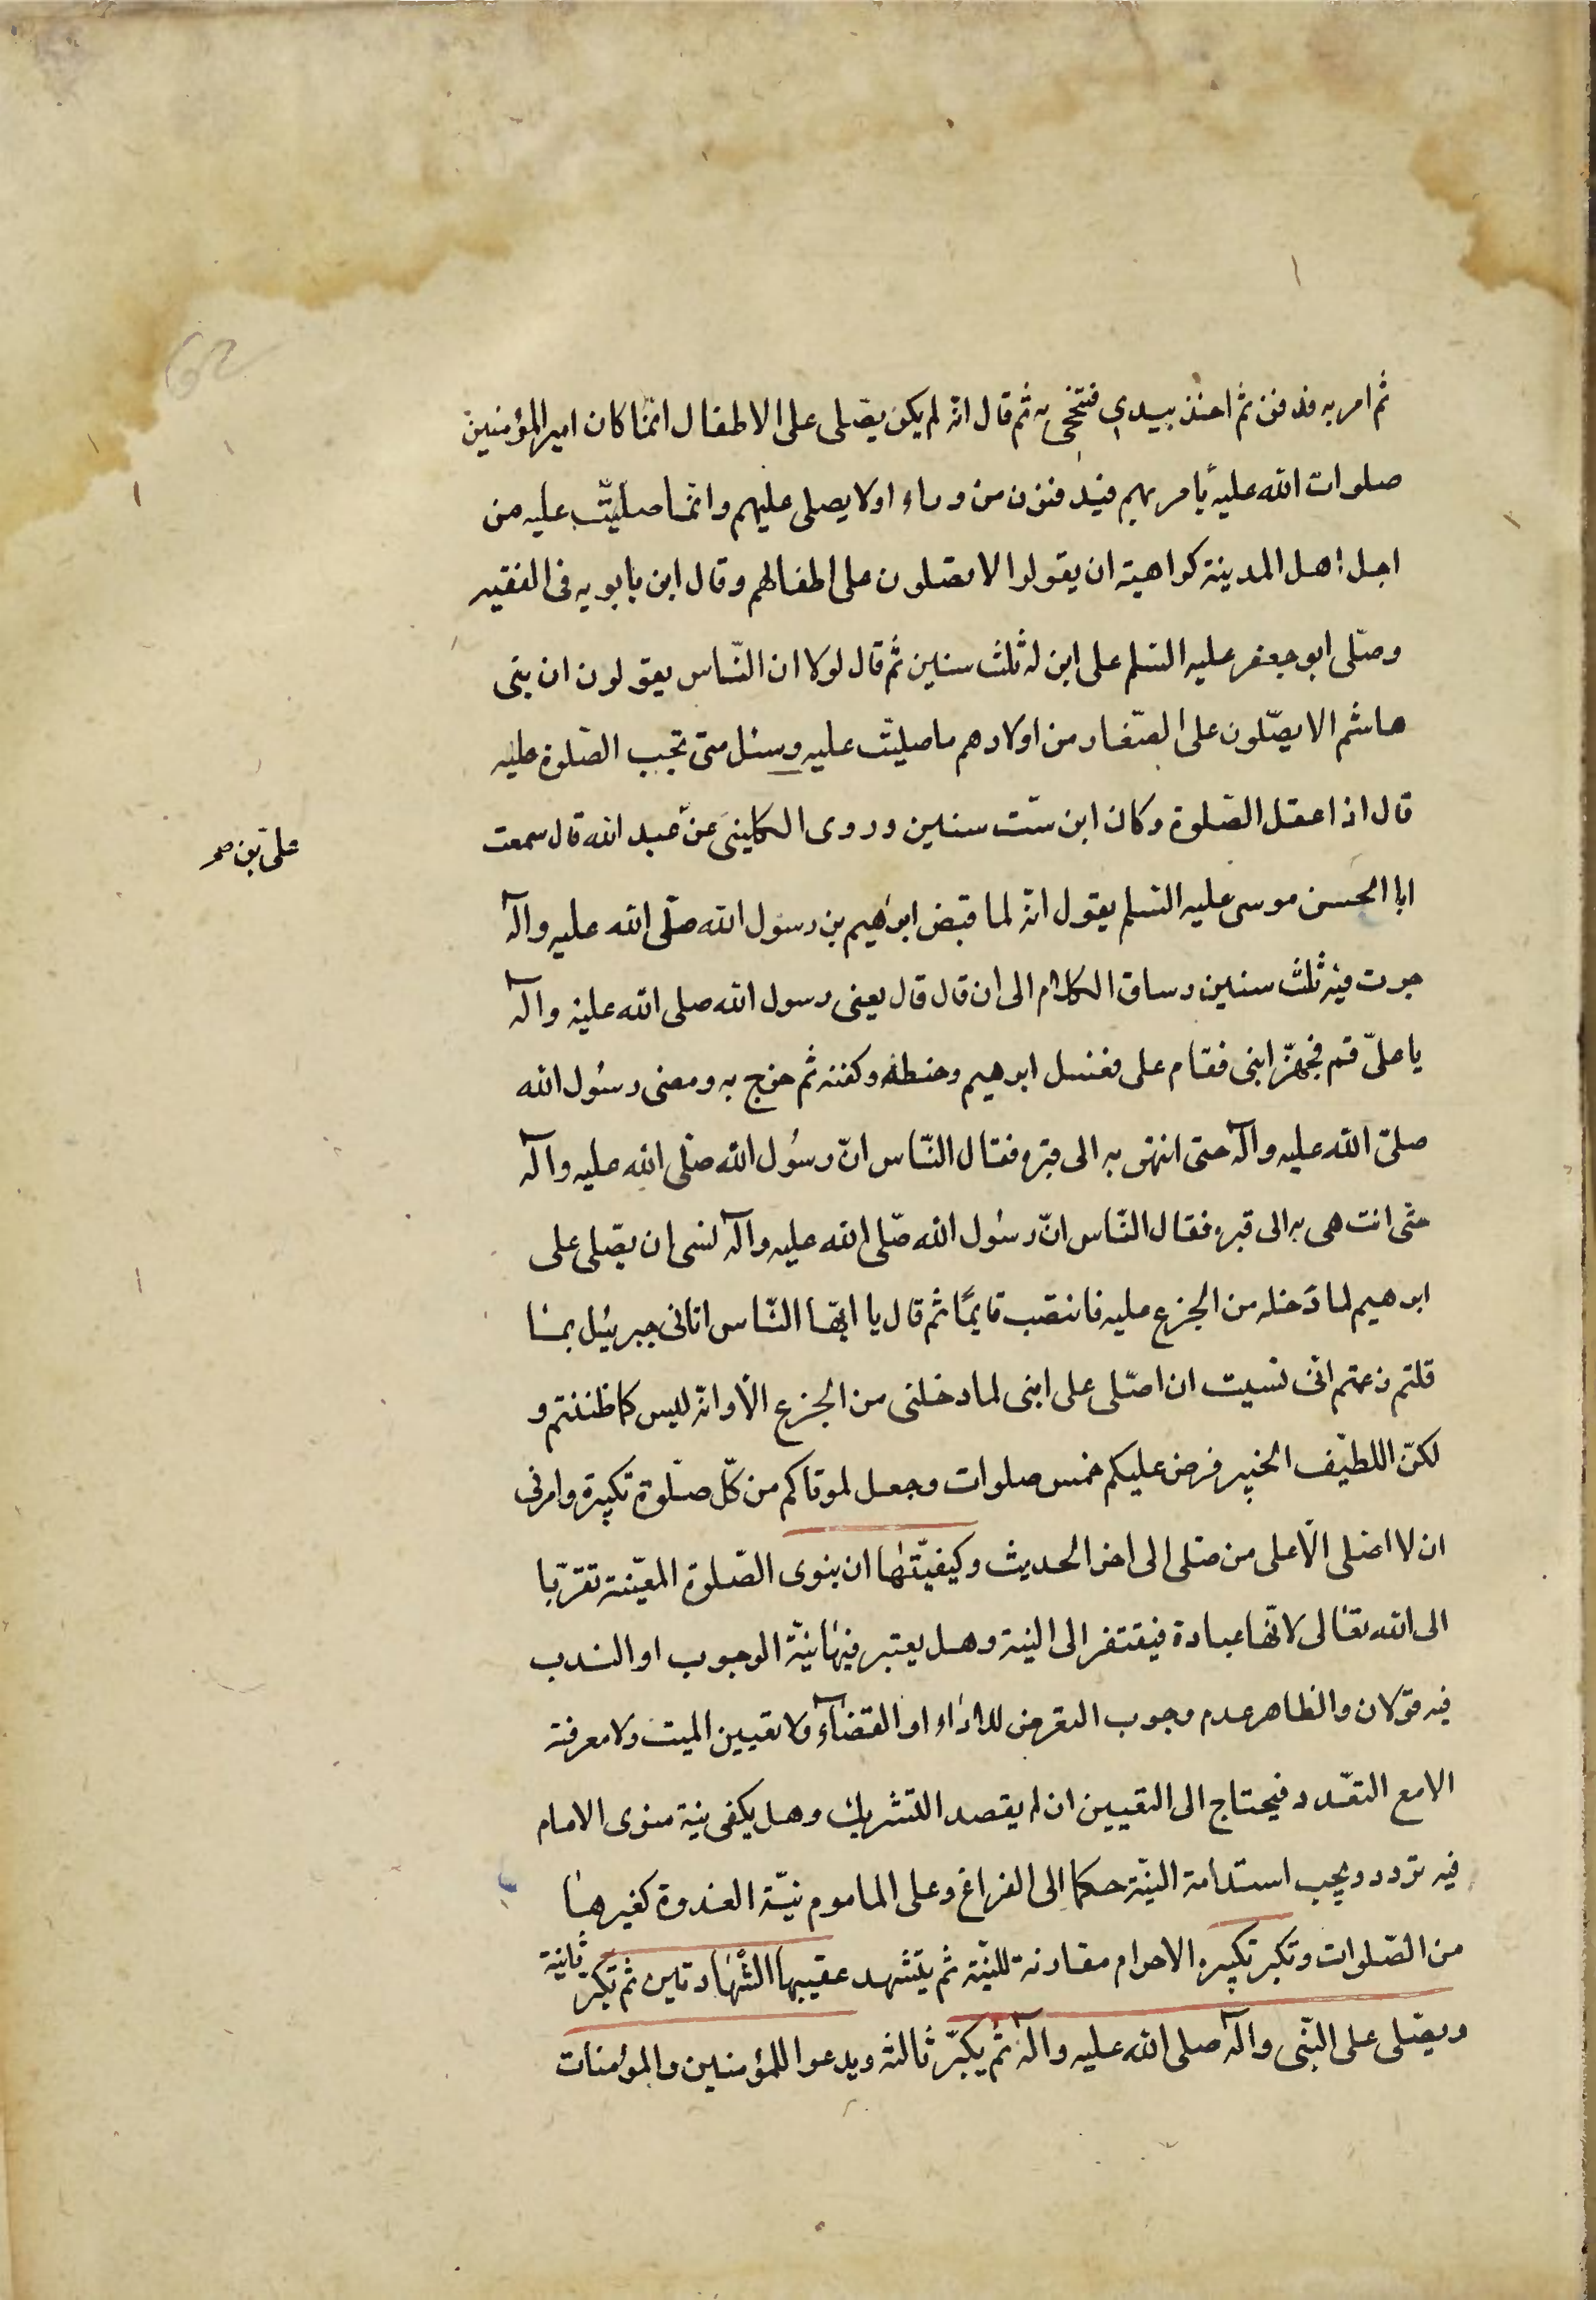 ثم امر به فدفن ثم اخذ بيدى فتنحى به ثم قال انه لم يكن يصّلى على الاطفال انمّا كان امير المؤمنين
صلوات الله عليه يأمر بهم فيدفنون من وراء اولا يصلى عليهم وانمّا صلّيت عليه من
اجل اهل المدينة كراهية ان يقولوا لا يصّلون على اطفالهم وقال ابن بابويه فى الفقيه
وصّلى ابو جعفر عليه السّلم على ابن له ثلث سنين ثم قال لولا ان النّاس يقولون ان بنى
هاشم لا يصّلون على الصّغار من اولادهم ما صليت عليه وسئل متى تجب الصّلوة عليه
قال اذا عقل الصّلوة وكان ابن ستّ سنين وروى الكلينى عن عبد الله قال سمعت
على بن صح
ابا الحسن موسى عليه السّلم يقول انه لما قبض ابراهيم بن رسول الله صلّى الله عليه وآله
جرت فيه ثلث سنين وساق الكلام الى ان قال قال يعنى رسول الله صلى الله عليه وآله
يا علىّ قم فجهّز ابنى فقام على فغسل ابرهيم وحنطه وكفنه ثم خرج به ومضى رسُول الله
صلىّ الله عليه وآله حتى انتهى به الى قبره فقال النّاس انّ رسُول الله صلّى الله عليه وآله
حتى انت هى به الى قبره فقال النّاس انّ رسُول الله صّلى الله عليه وآله نسى ان يصّلى على
ابرهيم لما دَخله من الجزع عليه فانتصَب قايمًا ثم قال يا ايّها النّاس اتانى جبرئيل بما
قلتم زعمتم انّى نسيت ان اصّلى على ابنى لما دخلنى من الجزع الّا وانه ليس كما ظننتم و
لكنّ اللطيف الخبير فرض عليكم خمس صلوات وجعل لموتاكم من كلّ صلوة تكبيرة وامرنى
ان لا اصلى الّا على من صلى الى اخر الحديث وكيفيّتها ان ينوى الصّلوة المعيّنة تقرّبا
الى الله تعالى لانّها عبادة فيفتقر الى النية وهل يعتبر فيها نيّة الوجوب او الندب
فيه قولان والظاهر عدم وجوب التعرض للاداء او القضآء ولا تعيين الميت ولا معرفته
الا مع التعّدد فيحتاج الى التعيين ان لم يقصد التشريك وهل يكفى نية منوى الامام
فيه تردد ويجب استدامة النيّة حكما الى الفراغ وعلى الماموم نيّة القدوة كغيرها
من الصّلوات وتكبر تكبيره الاحرام مقارنة للنيّة ثم يتشهد عقيبها الشّهادتين ثم تكبّر ثانية
ويصّلى على النّبى وآله صلى الله عليه وآله ثم يكبّر ثالثه ويدعوا للمؤمنين والمؤمنات